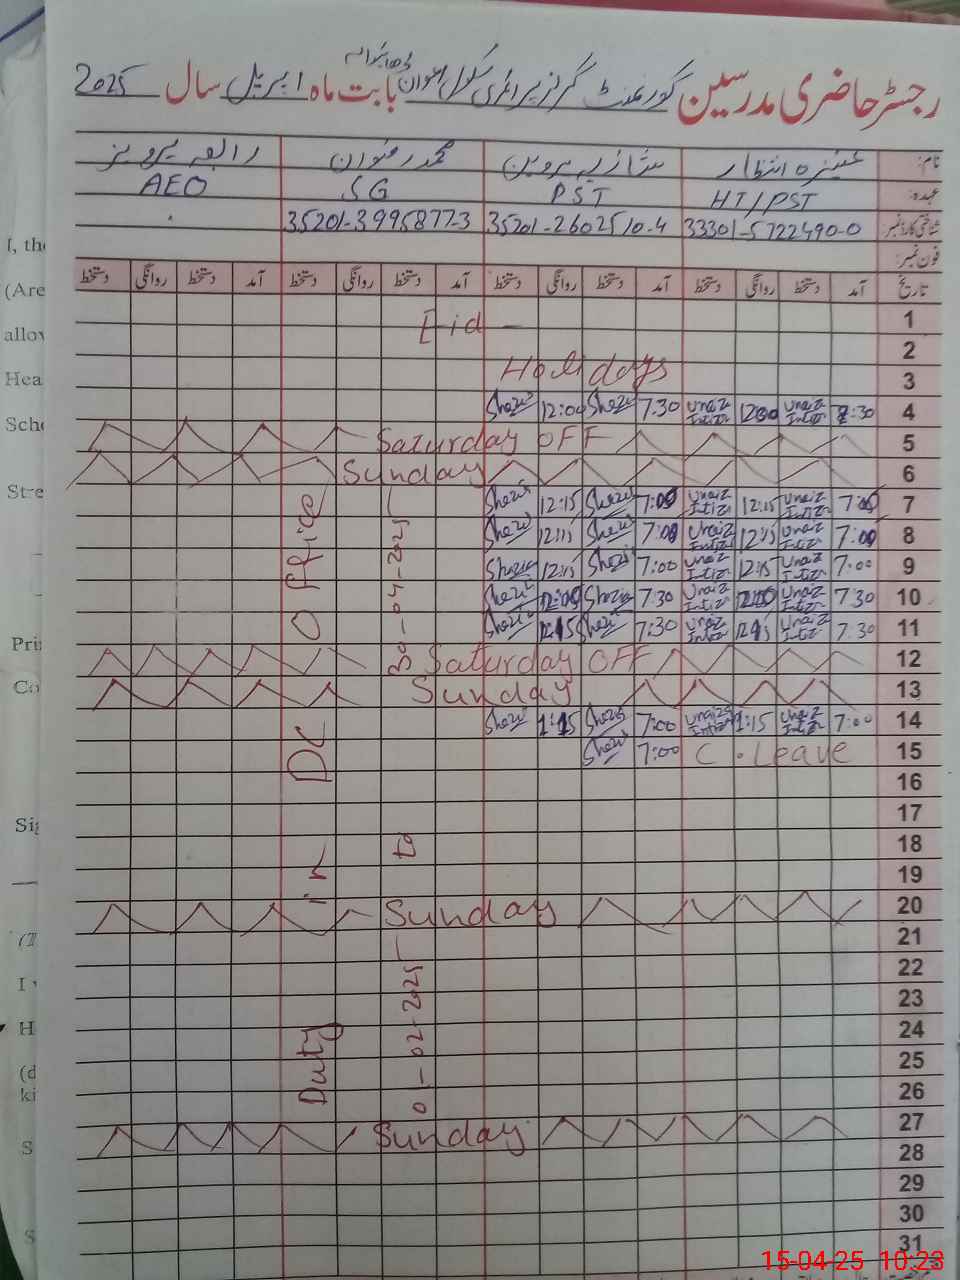 رجسٹر حاضری مدرسین گورنمنٹ گرلز پرائمری سکول اعوان ڈھائیوالہ بابت ماہ اپریل سال 2025
نام: عنیزہ انتظار شازیہ پروین محمد رضوان رابعہ پرویز
عہدہ: HT/PST PST SG AEO
شناختی کارڈ نمبر: 33301-5722490-0 35201-2602510-4 35201-3995877-3
فون نمبر:
تاریخ آمد دستخط روانگی دستخط آمد دستخط روانگی دستخط آمد دستخط روانگی دستخط آمد دستخط روانگی دستخط
1 Eid -
2
3 Holidays
4 7:30 Unaiz Intizr 12:00 Unaiz Intizr 7:30 Shazi 12:00 Shazi
5 Saturday OFF
6 Sunday
7 7:00 Unaiz Intizr 12:15 Unaiz Intizr 7:00 Shazi 12:15 Shazi
8 7:00 Unaiz Intizr 12:15 Unaiz Intizr 7:00 Shazi 12:15 Shazi
9 7:00 Unaiz Intizr 12:15 Unaiz Intizr 7:00 Shazi 12:15 Shazia
10 7:30 Unaiz Intizr 12:00 Unaiz Intizr 7:30 Shazia 12:00 Shazi
11 7:30 Unaiz Intizr 12:15 Unaiz Intizr 7:30 Shazi 12:15 Shazi
12 Saturday OFF
13 Sunday
14 7:00 Unaiz Intizr 1:15 Unaiza Intizr 7:00 Shazi 1:15 Shazi
15 C. Leave 7:00 Shazi
16
17
18
19
20 Sunday
21
22
23
24
25
26
27 Sunday
28
29
30
31
Duty in DC Office
01-02-2025 to 30-04-2025
I, the
(Are
allow
Hea
Scho
Stre
Pri
Co
Sig
I
H
(d
ki
S
S
15-04-25 10:23